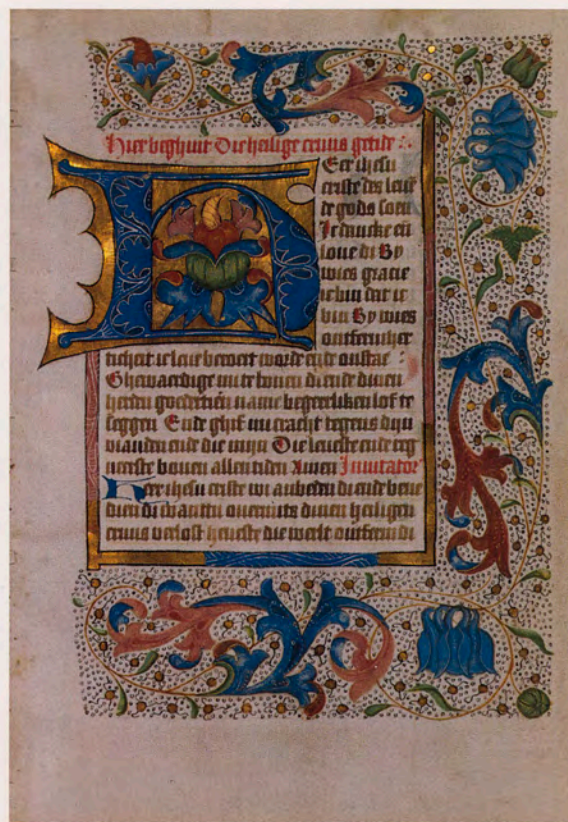 Hier beghint Die heilige cruus getide
Heer ihesu
criste des leue
de gods soen
Ic dancke en
loue di By
wies gracie
ic bin dat ic
bin By wies
ontfermher
ticheit ic leue beroert worde ende
Ghewaerdige mi te louen di ende dinen
herden name begeerliken lof te
seggen Ende ghif mi cracht tegens dijn
vianden ende die mijn Die leueste ende
neerste bouen allen tiden Amen Inuitator
Heer ihesu criste wi anbeden di ende bene
dien di want tu ouermits dinen heiligen
cruus verlost heueste die werlt ontferm di